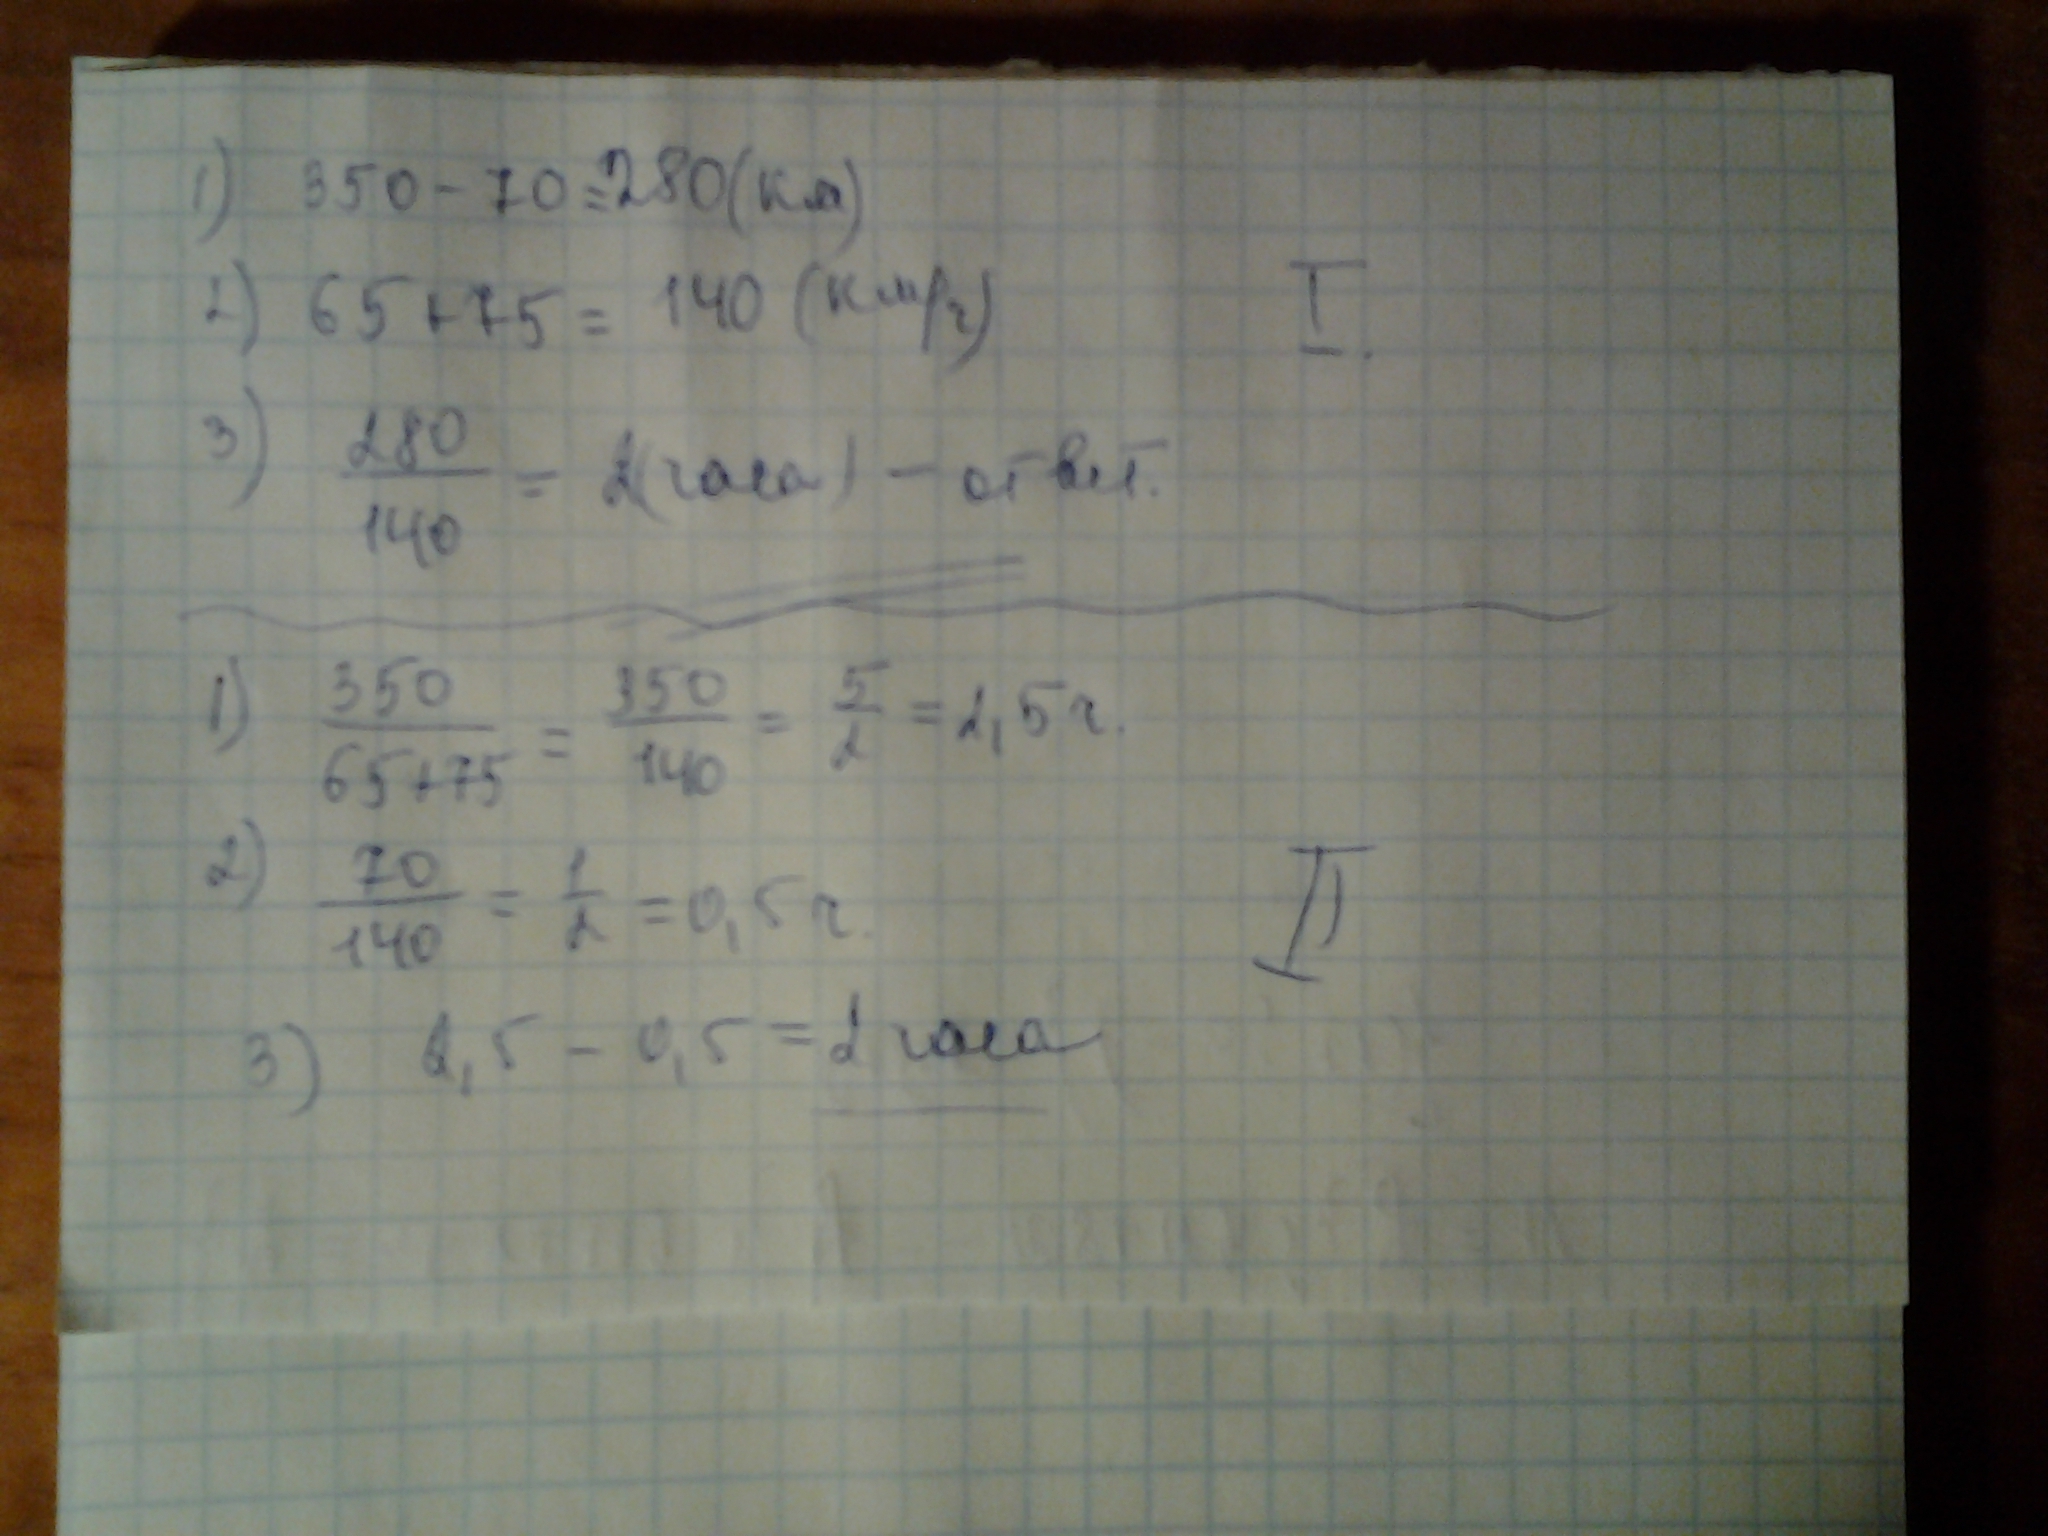 1) 350 - 70 = 280 (км)
2) 65 + 75 = 140 (км/ч)
I.
3) 280/140 = 2 (часа) - ответ.
1) 350/(65+75) = 350/140 = 5/2 = 2,5 ч.
2) 70/140 = 1/2 = 0,5 ч.
II
3) 2,5 - 0,5 = 2 часа